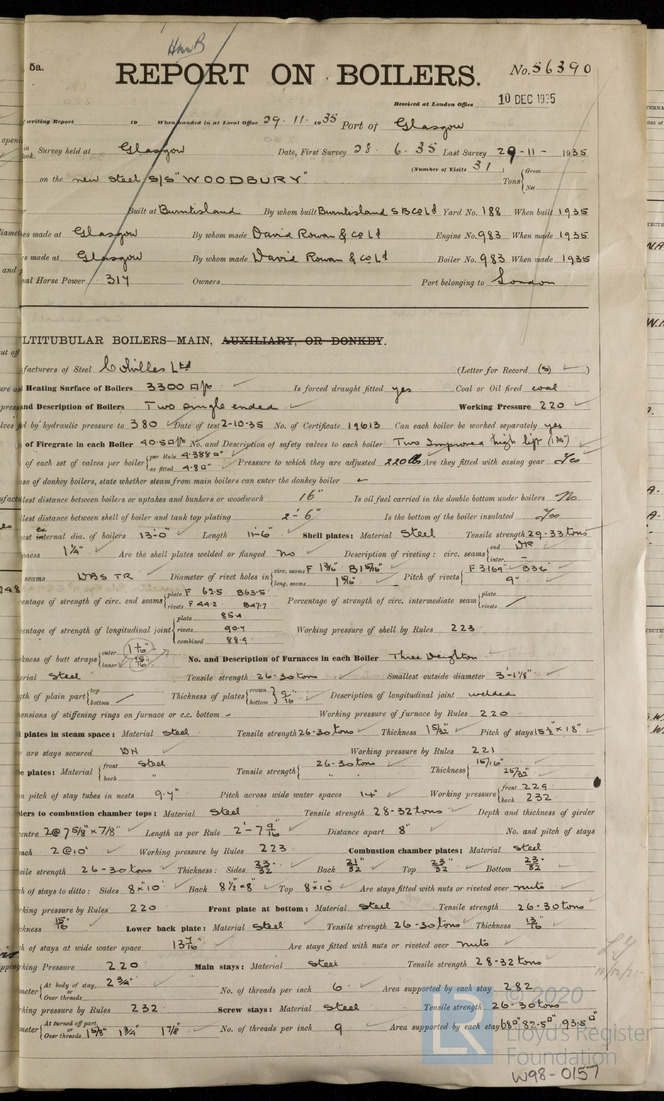 HwB
5a.
REPORT ON BOILERS.
No. 56390
Received at London Office 10 DEC 1935
writing Report 19 When handed in at Local Office 29.11.1935 Port of Glasgow
Survey held at Glasgow Date, First Survey 28.6.35 Last Survey 29-11-1935
(Number of Visits 31)
on the new Steel S/S "WOODBURY" Tons {Gross Net
Built at Burntisland By whom built Burntisland S B Co Ld Yard No. 188 When built 1935
made at Glasgow By whom made David Rowan & Co Ld Engine No. 983 When made 1935
made at Glasgow By whom made David Rowan & Co Ld Boiler No. 983 When made 1935
al Horse Power 317 Owners Port belonging to London
LTITUBULAR BOILERS—MAIN, AUXILIARY, OR DONKEY.
facturers of Steel Colvilles Ltd (Letter for Record (S) )
Heating Surface of Boilers 3300 Is forced draught fitted yes Coal or Oil fired coal
nd Description of Boilers Two single ended Working Pressure 220
by hydraulic pressure to 380 Date of test 2-10-35 No. of Certificate 19613 Can each boiler be worked separately yes
of Firegrate in each Boiler 40.50 No. and Description of safety valves to each boiler Two Improved high lift
of each set of valves per boiler {per Rule 4.388 as fitted 4.80 Pressure to which they are adjusted 220 lb Are they fitted with easing gear Yes
se of donkey boilers, state whether steam from main boilers can enter the donkey boiler -
lest distance between boilers or uptakes and bunkers or woodwork 16" Is oil fuel carried in the double bottom under boilers No
lest distance between shell of boiler and tank top plating 2'-6" Is the bottom of the boiler insulated Yes
internal dia. of boilers 13'-0" Length 11'-6" Shell plates: Material Steel Tensile strength 29-33 tons
ness 1¼" Are the shell plates welded or flanged no Description of riveting: circ. seams {end DR inter. -
seams DBS TR Diameter of rivet holes in {circ. seams F 1 3/16 B 1 5/16 long. seams 1 5/16 Pitch of rivets {F 3.169 3.36 9"
entage of strength of circ. end seams {plate F 62.5 B 63.5 rivets F 44.2 B 47.7 Percentage of strength of circ. intermediate seam {plate rivets
centage of strength of longitudinal joint {plate 85.4 rivets 90.7 combined 88.9 Working pressure of shell by Rules 223
kness of butt straps {outer 1 1/16 inner 15/16 No. and Description of Furnaces in each Boiler Three Deighton
erial Steel Tensile strength 26-30 tons Smallest outside diameter 3'-1⅛"
gth of plain part {top bottom Thickness of plates {crown bottom} 9/16" Description of longitudinal joint welded
ensions of stiffening rings on furnace or c.c. bottom - Working pressure of furnace by Rules 220
plates in steam space: Material Steel Tensile strength 26-30 tons Thickness 15/32 Pitch of stays 15½" x 18"
are stays secured DN Working pressure by Rules 221
e plates: Material {front Steel back " Tensile strength {26-30 tons " Thickness {15/16" 25/32"
n pitch of stay tubes in nests 9.4" Pitch across wide water spaces 14" Working pressure {front 229 back 232
ders to combustion chamber tops: Material Steel Tensile strength 28-32 tons Depth and thickness of girder
entre 2 @ 7⅝" x 7/8" Length as per Rule 2'-7 9/16" Distance apart 8" No. and pitch of stays
ach 2 @ 10" Working pressure by Rules 223 Combustion chamber plates: Material Steel
sile strength 26-30 tons Thickness: Sides 23/32 Back 21/32 Top 23/32 Bottom 23/32
ch of stays to ditto: Sides 8"x10" Back 8½"x8" Top 8"x10 Are stays fitted with nuts or riveted over nuts
king pressure by Rules 220 Front plate at bottom: Material Steel Tensile strength 26-30 tons
kness 15/16 Lower back plate: Material Steel Tensile strength 26-30 tons Thickness 13/16
ch of stays at wide water space 13 7/16" Are stays fitted with nuts or riveted over nuts
king Pressure 220 Main stays: Material Steel Tensile strength 28-32 tons
meter {At body of stay, 2¾" or Over threads No. of threads per inch 6 Area supported by each stay 282
rking pressure by Rules 232 Screw stays: Material Steel Tensile strength 26-30 tons
meter {At turned off part, or Over threads 1⅝" 1¾" 1⅞" No. of threads per inch 9 Area supported by each stay 80 82.5 93.5
© 2020
LR Lloyd's Register
Foundation
W98-0157